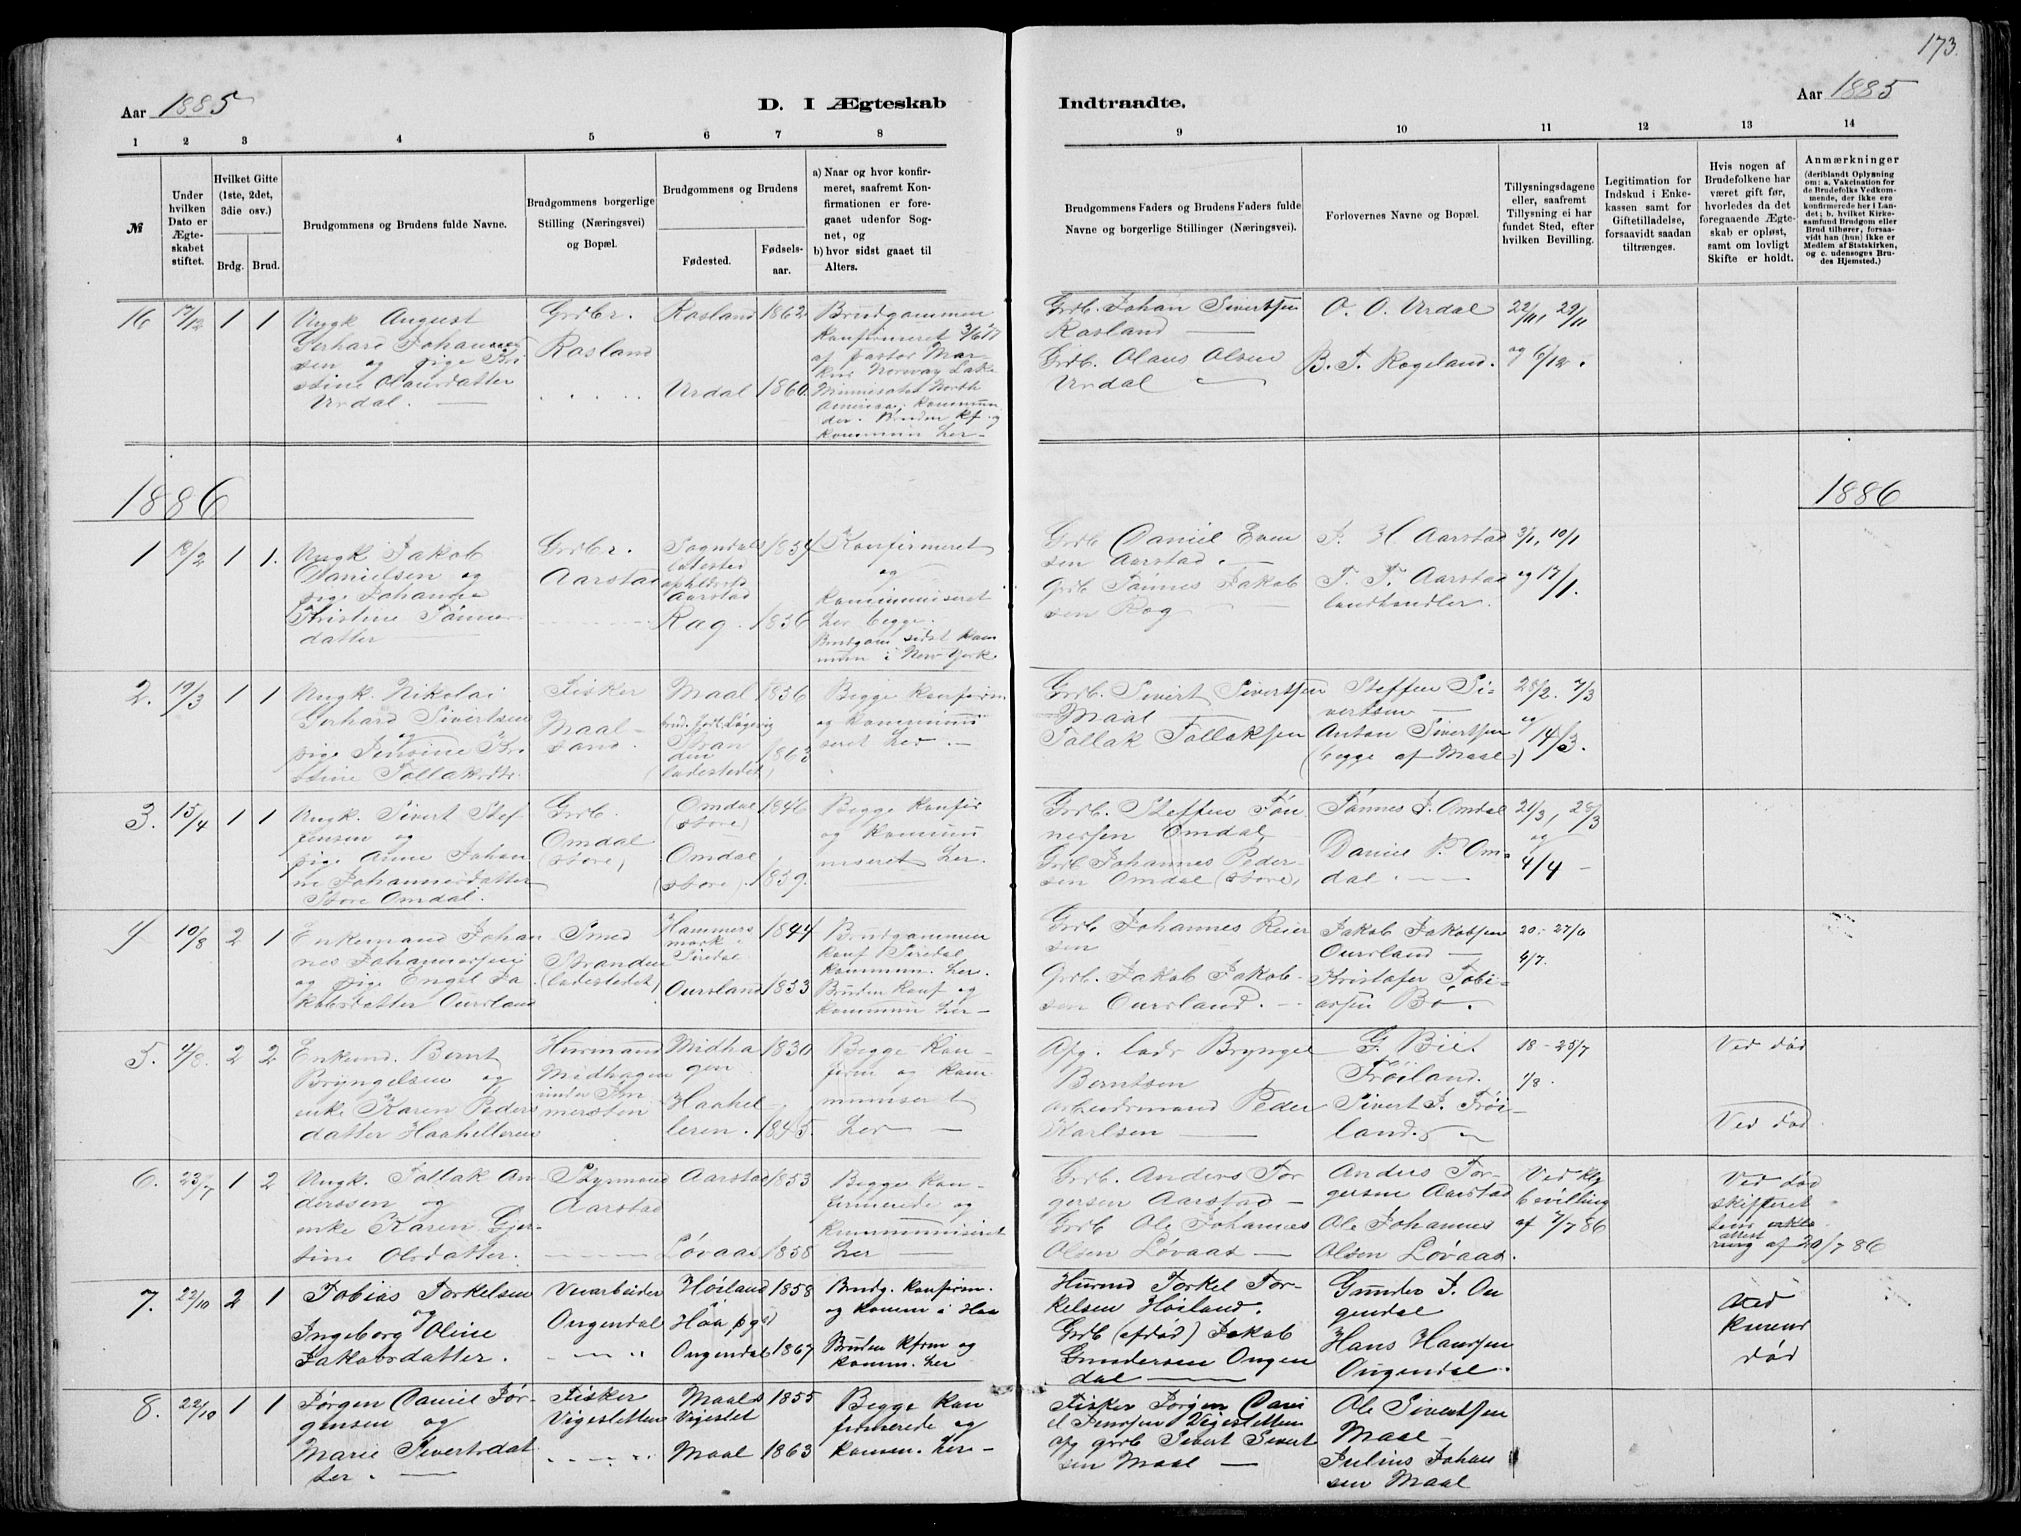 173.
Aar 1885
D. I Ægteskab
Indtraadte.
Aar 1885
1 2 3 4 5 6 7 8
9 10 11 12 13 14
№
Under
hvilken
Dato er
Ægte-
skabet
stiftet.
Hvilket Gifte
(1ste, 2det,
3die osv.)
Brdg. Brud.
Brudgommens og Brudens fulde Navne.
Brudgommens borgerlige
Stilling (Næringsvei)
og Bopæl.
Brudgommens og Brudens
Fødested.
Fødsels-
aar.
a) Naar og hvor konfir-
meret, saafremt Kon-
firmationen er fore-
gaaet udenfor Sog-
net, og
b) hvor sidst gaaet til
Alters.
Brudgommens Faders og Brudens Faders fulde
Navne og borgerlige Stillinger (Næringsvei).
Forlovernes Navne og Bopæl.
Tillysningsdagene
eller, saafremt
Tillysning ei har
fundet Sted, efter
hvilken Bevilling.
Legitimation for
Indskud i Enke-
kassen samt for
Giftetilladelse,
forsaavidt saadan
tiltrænges.
Hvis nogen af
Brudefolkene har
været gift før,
hvorledes da det
foregaaende Ægte-
skab er opløst,
samt om lovligt
Skifte er holdt.
Anmærkninger
(deriblandt Oplysning
om: a. Vakcination for
de Brudefolks Vedkom-
mende, der ikke ere
konfirmerede her i Lan-
det; b. hvilket Kirke-
samfund Brudgom eller
Brud tilhører, forsaa-
vidt han (hun) ikke er
Medlem af Statskirken,
og c. udensogns Bru-
des Hjemsted.)
16 17/12 1 1
Ungk. August
Gerhard Johannes
sen og pige Kri
stine Olausdatter
Urdal.
Grdbr.
Rosland
Rosland 1862
Urdal 1860.
Brudgommen
Konfirmeret 3/6 77
af pastor Mar-
kus Norway Lake
Minnesota North
America, kommun
der. Bruden Kf. og
kommun her-
Grdb. Johan Sivertsen
Rosland
Grdb. Olaus Olsen
Urdal
O. O. Urdal
B. T. Rogeland.
22/11, 29/11
og 6/12.
1886
1886
1 18/2 1 1.
Ungk. Jakob
Danielsen og
pige Johanne
Kristine Tønnes
datter
Grdbr.
Aarstad
Sogndals
ladested
opholdssted
Aarstad 1834
Rag. 1836
Konfirmeret
og
kommuniseret
her begge.
Brudgom sidst kom
mun i New York
Grdb Daniel Even
sen Aarstad.
Grdb Tønnes Jakob
sen Rog
J. H Aarstad
T. T. Aarstad
landhandler.
3/1, 10/1
og 17/1.
2. 19/3 1 1
Ungk. Nikolai
Gerhard Sivertsen
og
pige Jensine Kri
stine Tollaksdtr.
Fisker
Maal-
sand.
Maal 1836
Stran
den 1863
(ladestedet)
Begge konfirm
og kommuni
seret her.
Grdb. Sivert Sivertsen
Maal
Tollak Tollaksen
Steffen Si-
vertsen
Anton Sivertsen
(begge af Maal)
28/2. 7/3
og
14/3.
3. 15/4 1 1
Ungk. Sivert Stef
fensen og
pige Anne Johan
ne Johannesdatter
Store Omdal.
Grdb.
Omdal
(store)
Omdal 1846
(store)
Omdal
(store). 1839.
Begge konfir
og kommuni
niseret her.
Grdb. Steffen Tøn
nessen Omdal
Grdb Johannes Peder-
sen Omdal (store)
Tønnes J. Omdal
Daniel P. Om-
dal.
21/3, 28/3
og
4/4 -
4 10/8 2 1
Enkemand Johan
nes Johannessen
og pige Engel Ja-
kobsdatter Oursland
Smed
Stranden
(ladestedet)
Hammers
mark i
Siredal 1844
Oursland 1853
Brudgommen
konf i Siredal
kommun. her.
Bruden konf og
kommun her-
Grdb Johannes Reier
sen
Grdb. Jakob Jakob-
sen Oursland.
Jakob Jakobsen
Oursland
Kristofer Tobi-
assen Bø.
20.-27/6
4/7.
5. 4/8. 2 2
Enkemd. Bernt
Bryngelsen og
enke Karen Peders
datter Haahelleren
Huusmand
Midhagen
Midha 1830
gen
Haahel-
leren. 1845.
Begge kon-
firm og kom
muniseret
her
Afg. lods Bryngel
Berntsen
arbeidsmand Peder
Karlsen
G. Bie.
Frøiland.
Sivert J. Frøi-
land.
18-25/7
1/8.
Ved død
Ved død
6. 23/7 1 2
Ungk. Tollak An
derssen og
enke Karen Gjer-
tine Olsdatter.
Styrmand
Aarstad
Aarstad 1853
Løvaas 1858
Begge kon-
firmerede og
kommuniseret
her
Grdb. Anders Tor-
gersen Aarstad
Grdb Ole Johannes
Olsen Løvaas
Anders Tor-
gersen Aarstad
Ole Johannes
Olsen Løvaas.
Ved Klg
bevilling
af 7/7 86
Ved død
skifteret
tens
attest
af 20/7 86
7. 22/10 2 1
Tobias Torkelsen
og
Ingeborg Oline
Jakobsdatter.
Veiarbeider
Ougendal
Høiland 1858
Haa pgd
Ougendal 1867
Brudg. konfirm.
og komm i Haa
Bruden kfrm og
komm. her
Husmd Torkel Tor-
kelsen Høiland.
Grdb (afdød) Jakob
Gundersen Ougen
dal
Gunder J. Ou
gendal
Hans Hansen
Ougendal.
Ved
konens
død
8. 22/10 1 1
Jørgen Daniel Jør-
gensen og
Marie Sivertsdat
ter.
Fisker
Vigesletten
Maals 1855
Vigeslet
Maal 1863
Begge kon
firmerede og
komm. her-
Fisker Jørgen Dani
el Jensen Vigesletten
afg grdb Sivert Sivert
sen Maal
Ole Sivertsen
Maal-
Julius Johan
sen Maal